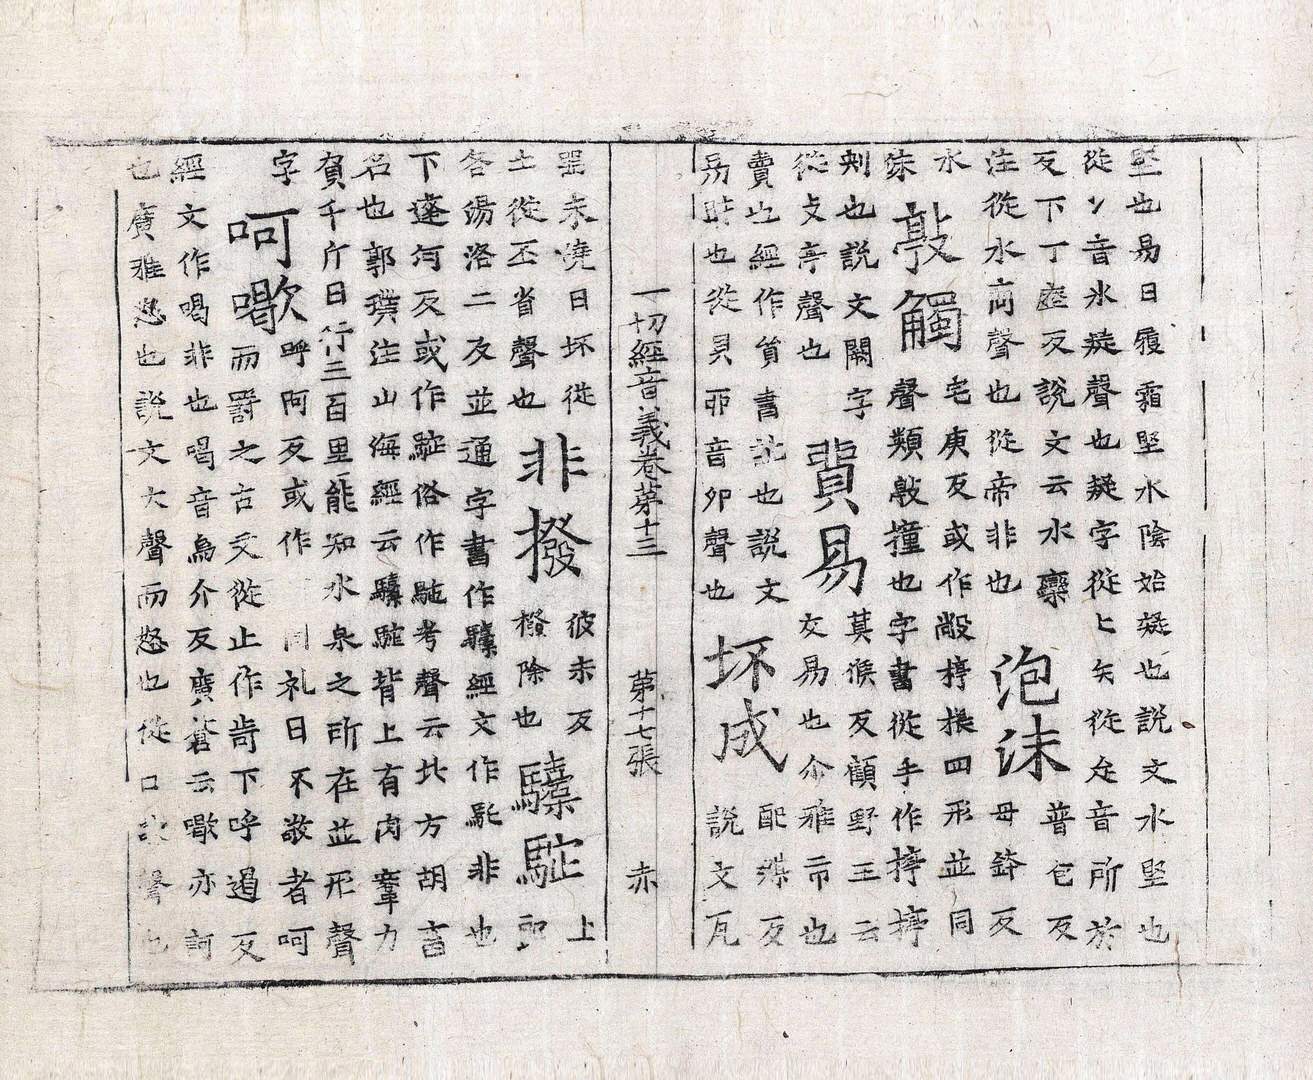 堅也易曰履霜堅氷陰始凝也說文水堅也
從冫音氷疑聲也疑字從匕矢從音所於
反下丁歷反說文云水欒
注從水啇聲也從帝非也
泡沫
普包反
母鉢反
水
沫
敲觸
宅庚反或作敞揨棖四形並同
聲類敲撞也字書從手作揨揨
刾也說文闕字
從攴亭聲也
貿易
莫候反顧野王云
交易也尒雅市也
賣也經作貿書訛也說文
易財也從貝丣音卯聲也
坏成
配反
說文瓦
一切經音義卷第十三 第十七張 赤
器未燒曰坏從
土從丕省聲也
非撥
彼未反
撥除也
驝駞
上郎
各湯洛二反並通字書作驝經文作駞非也
下逹河反或作駝俗作駞考聲云北方胡畜
名也郭璞注山海經云驝駞背上有肉鞌力
負千斤日行三百里能知水泉之所在並形聲
字
呵歇
呼阿反或作 同礼曰不敬者呵
而罰之古文從止作歭下呼遏反
經文作喝非也喝音烏介反廣蒼云歇亦訶
也廣雅怒也說文大聲而怒也從口聲也